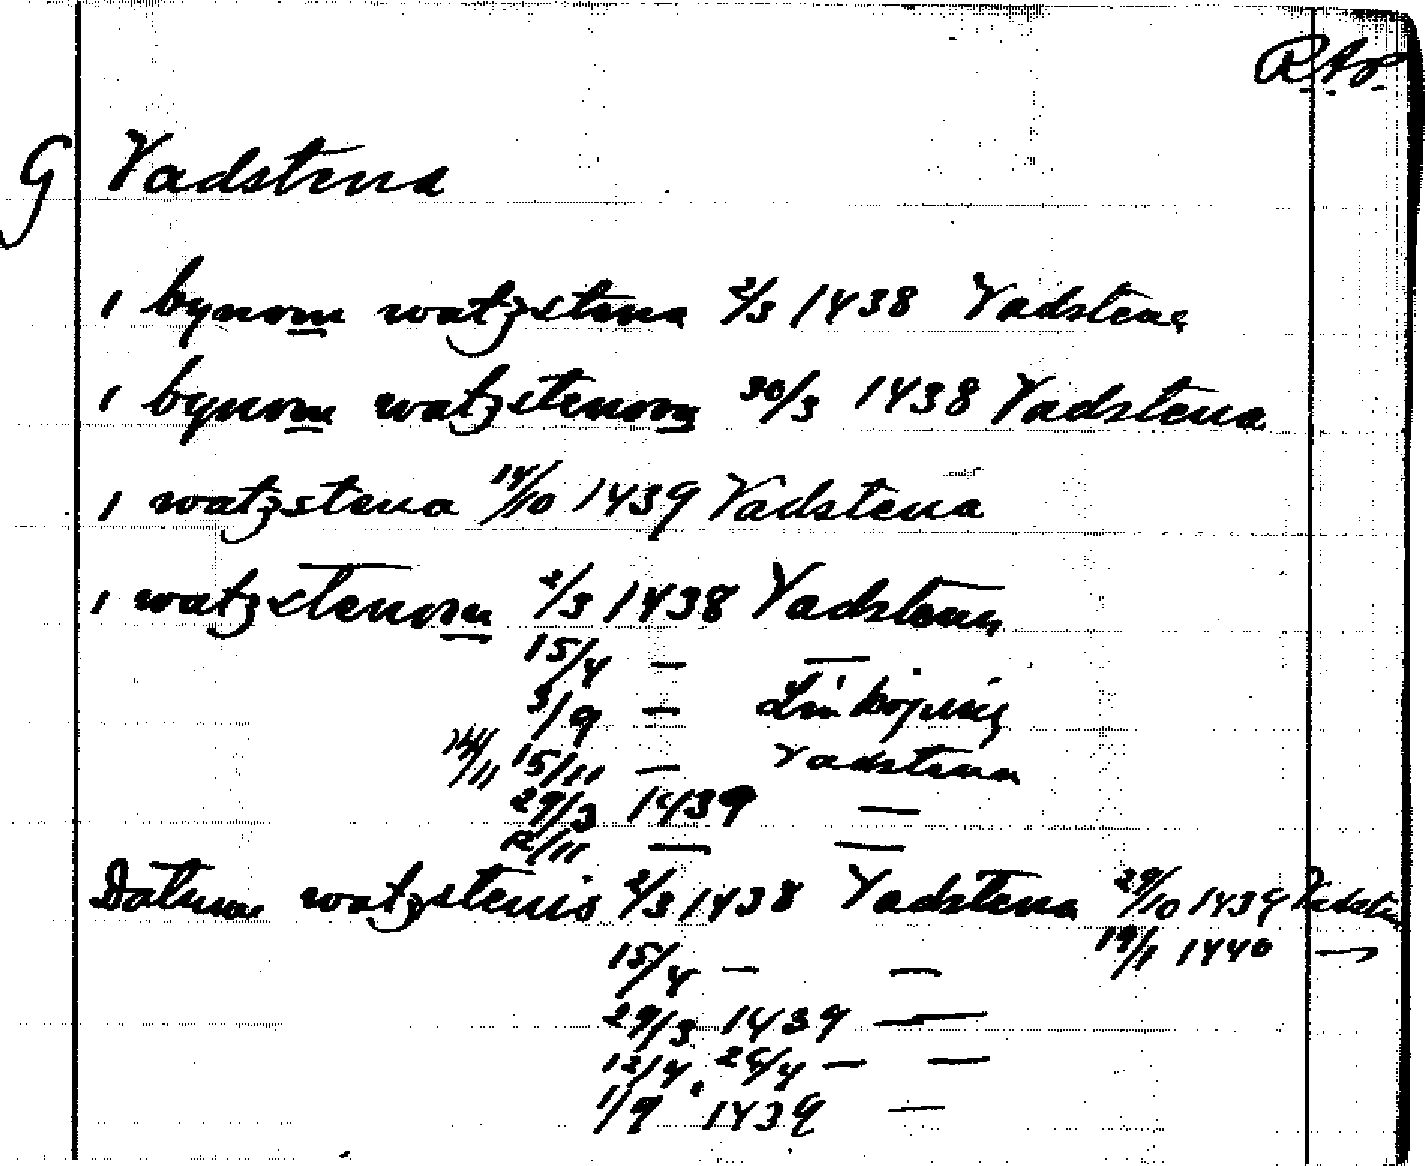 RAp
G Vadstena
i bynom watzstena 2/3 1438 Vadstena
i bynom watzstenom 30/3 1438 Vadstena
i watzstena 14/10 1439 Vadstena
i watzstenom 2/3 1438 Vadstena
15/4 — —
3/9 — Linköping
14/11 15/11 — Vadstena
29/3 1439 —
12/11 — —
Datum watzstenis 2/3 1438 Vadstena 29/10 1439 Vadstena
15/4 — — 19/1 1440 —
29/3 1439 —
12/4, 26/4 — —
1/9 1439 —